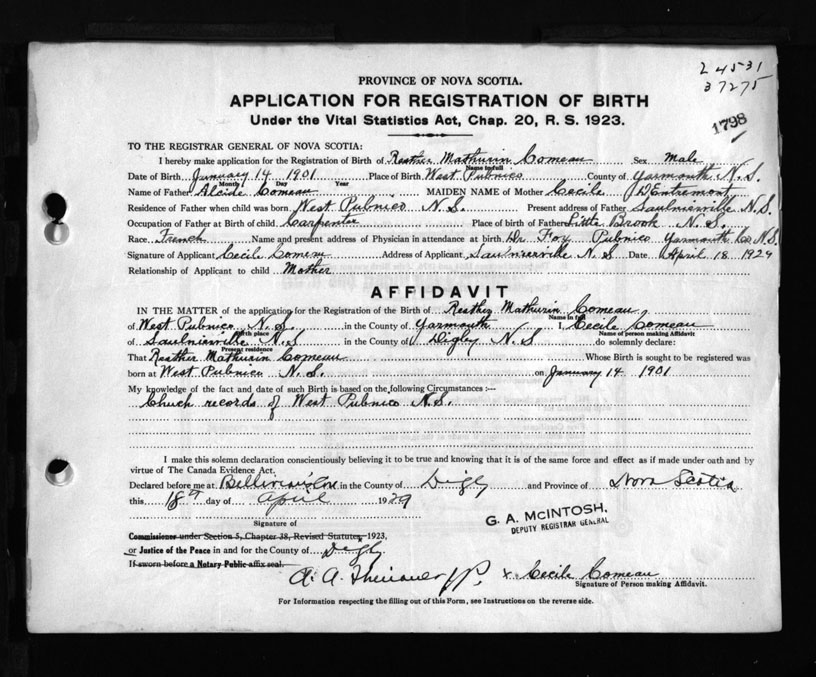 24531
37275
1798
PROVINCE OF NOVA SCOTIA.
APPLICATION FOR REGISTRATION OF BIRTH
Under the Vital Statistics Act, Chap. 20, R. S. 1923.
TO THE REGISTRAR GENERAL OF NOVA SCOTIA:
I hereby make application for the Registration of Birth of Resther Mathurin Comeau Sex Male
Name in full
Date of Birth January 14 1901 Place of Birth West Pubnico County of Yarmouth N. S.
Month Day Year
Name of Father Alcide Comeau MAIDEN NAME of Mother Cecile D'Entremont
Residence of Father when child was born West Pubnico N. S. Present address of Father Saulnierville N. S.
Occupation of Father at Birth of child Carpenter Place of birth of Father Little Brook N. S.
Race French Name and present address of Physician in attendance at birth Dr Fox Pubnico Yarmouth Co N. S.
Signature of Applicant Cecile Comeau Address of Applicant Saulnierville N. S Date April 18 1929
Relationship of Applicant to child Mother
AFFIDAVIT
IN THE MATTER of the application for the Registration of the Birth of Resther Mathurin Comeau
Name in full
of West Pubnico N. S. in the County of Yarmouth I, Cecile Comeau
Birth place Name of person making Affidavit
of Saulnierville N. S in the County of Digby N. S do solemnly declare:
Present residence
That Resther Mathurin Comeau Whose Birth is sought to be registered was
born at West Pubnico N. S. on January 14 1901
My knowledge of the fact and date of such Birth is based on the following Circumstances :—
Chuch records of West Pubnico N. S.
I make this solemn declaration conscientiously believing it to be true and knowing that it is of the same force and effect as if made under oath and by
virtue of The Canada Evidence Act.
Declared before me at in the County of Digby and Province of Nova Scotia
this 18th day of April 1929
G. A. McINTOSH,
DEPUTY REGISTRAR GENERAL
Signature of
Commissioner under Section 5, Chapter 38, Revised Statutes, 1923,
or Justice of the Peace in and for the County of Digby
If sworn before a Notary Public affix seal.
A. A. J P. x Cecile Comeau
Signature of Person making Affidavit.
For Information respecting the filling out of this Form, see Instructions on the reverse side.